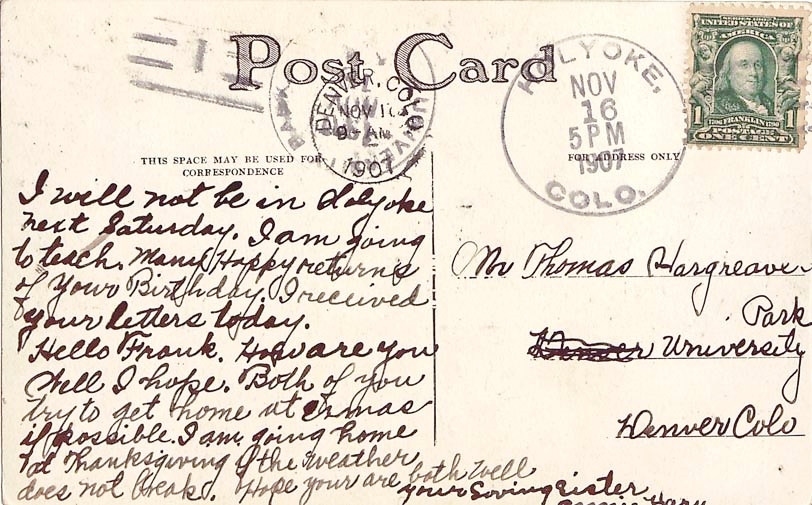 Post Card
THIS SPACE MAY BE USED FOR
CORRESPONDENCE
FOR ADDRESS ONLY
DENVER, COLO.
NOV 16
9 - AM
1907
HOLYOKE,
NOV
16
5 PM
1907
COLO.
SERIES 1902
UNITED STATES OF
AMERICA
1706 FRANKLIN 1790
1 POSTAGE 1
ONE CENT
I will not be in Holyoke
next Saturday. I am going
to teach. Many Happy returns
of Your Birthday. I received
your letters today.
Hello Frank. How are you
Well I hope. Both of you
try to get home at Xmas
if possible. I am going home
at Thanksgiving if the weather
does not break. Hope your are both well
your loving sister
Mary
Mr Thomas Hargreaves
Park
Denver University
Denver Colo